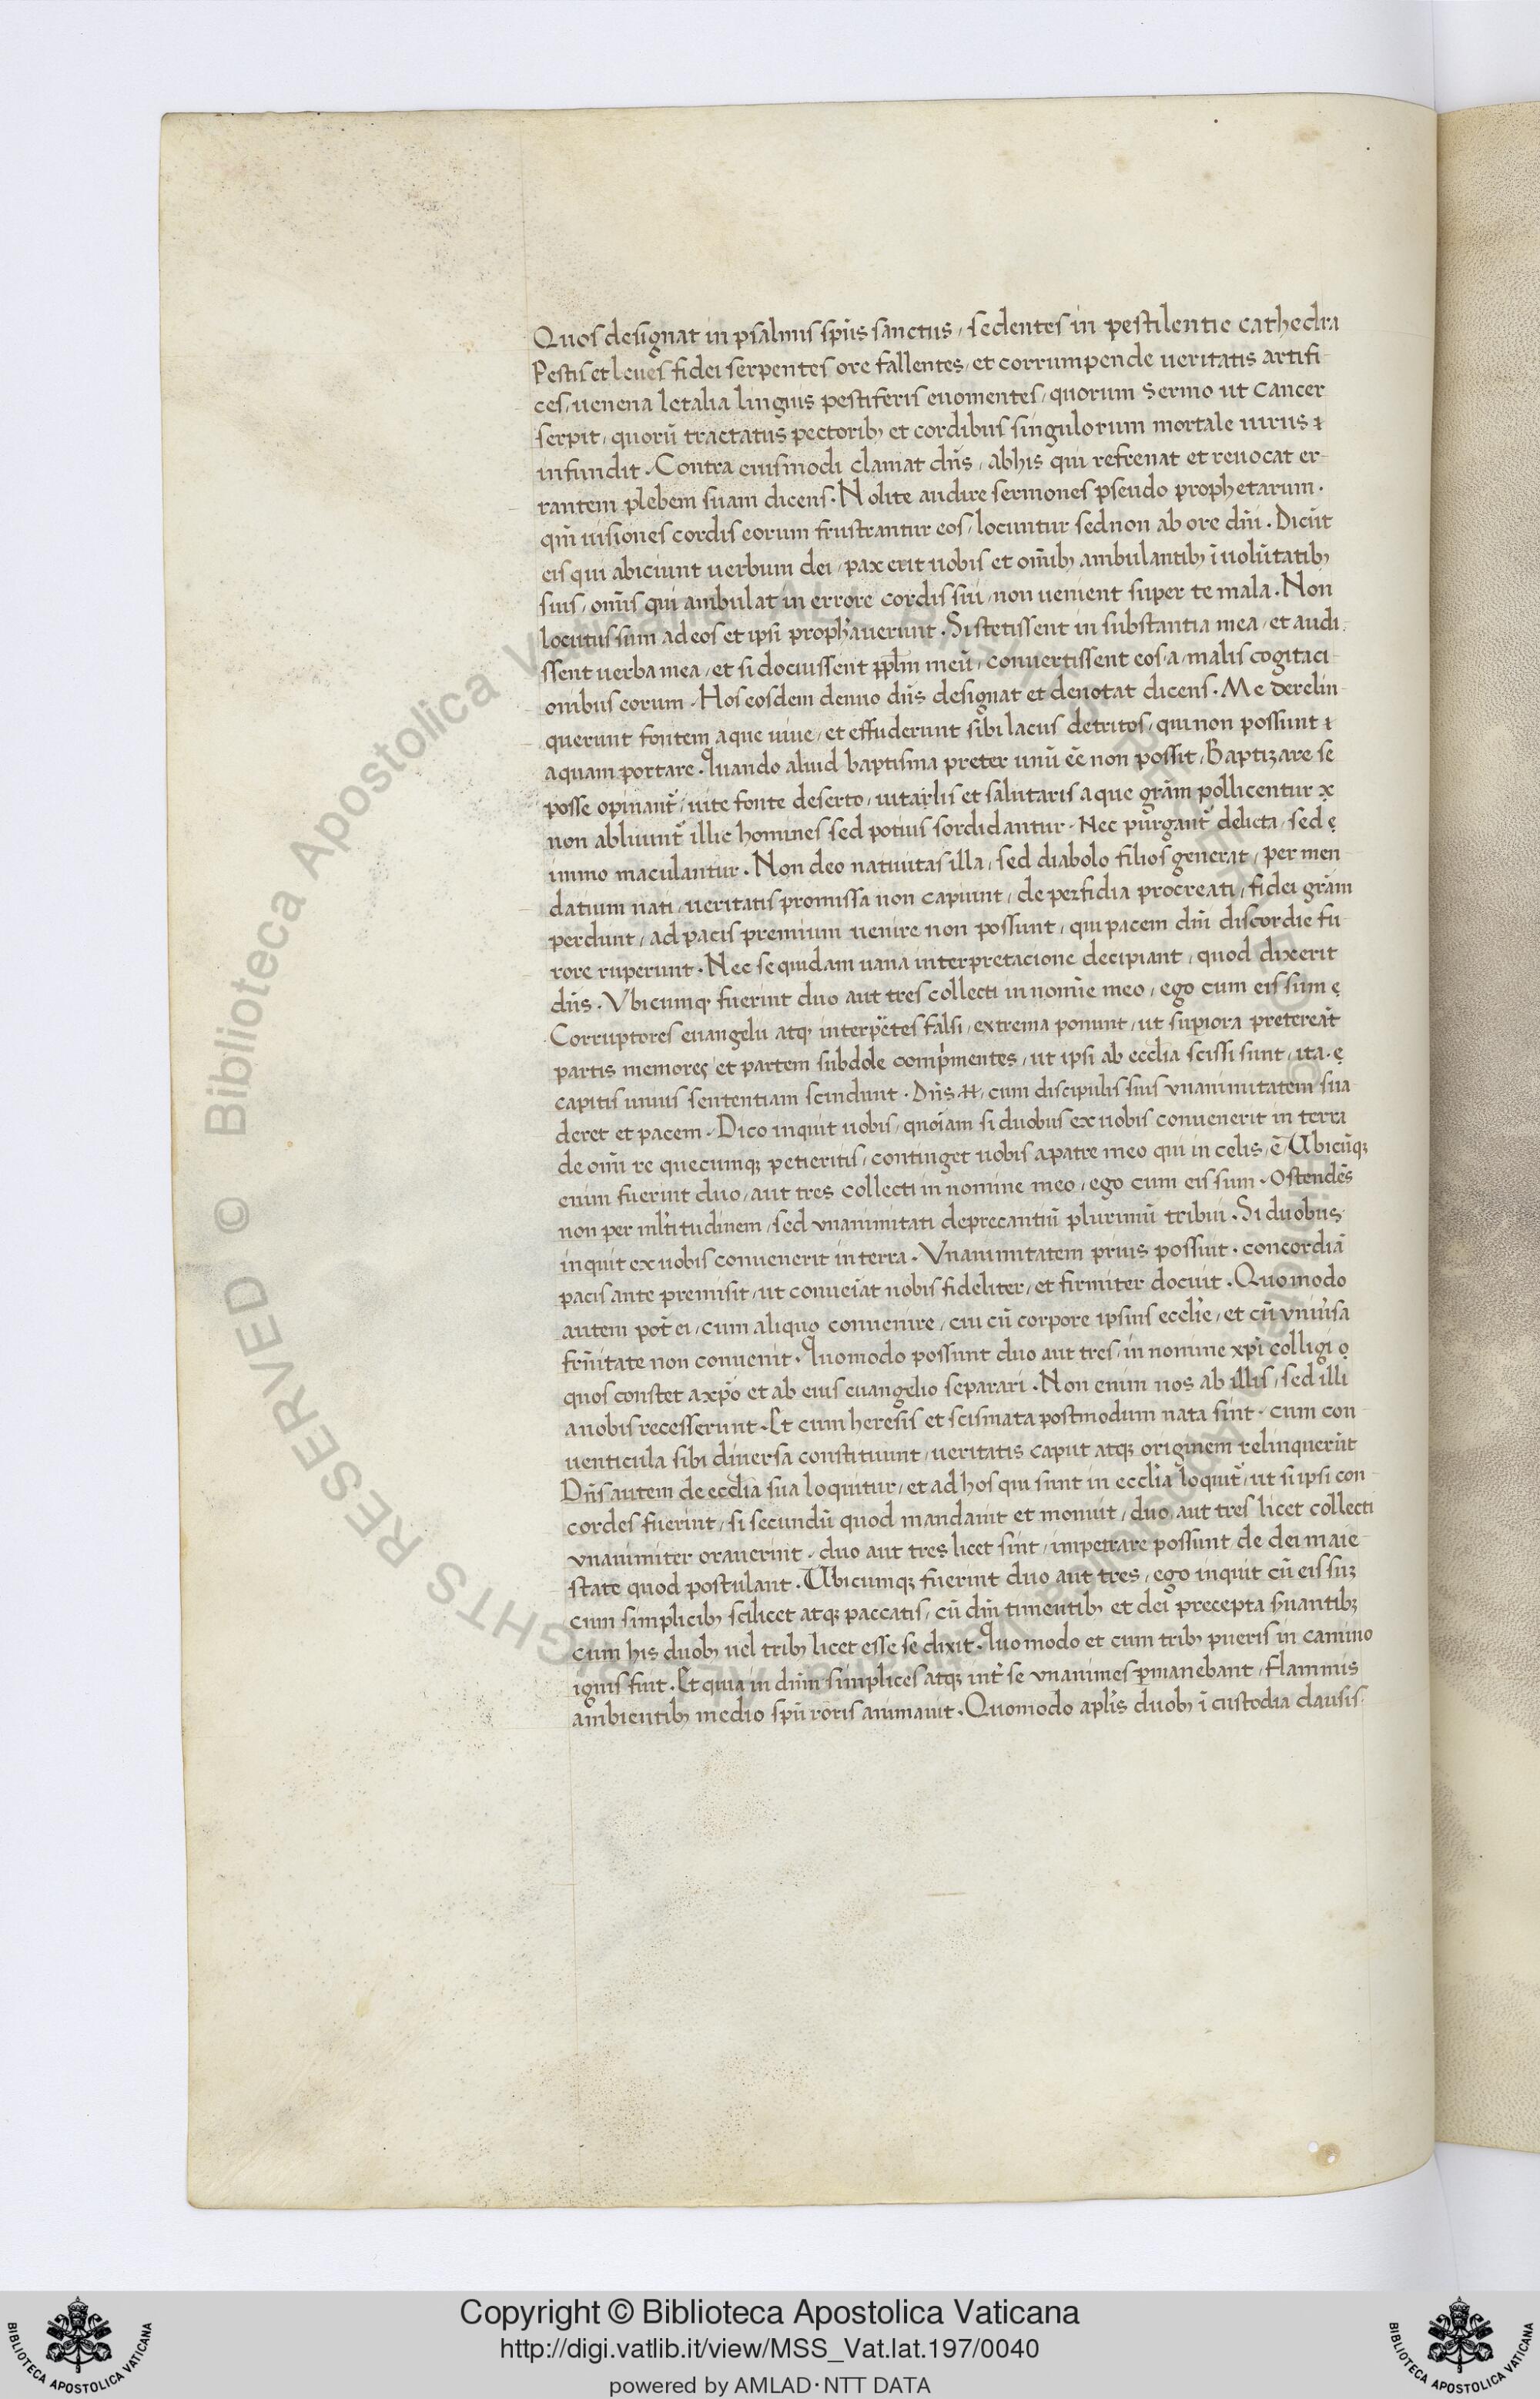 Quos designat in psalmis spūs sanctus, sedentes in pestilentie cathedra
Pestis et leues fidei serpentes ore fallentes, et corrumpende ueritatis artifi-
ces, uenena letalia linguis pestiferis euomentes, quorum Sermo ut Cancer
serpit, quorū tractatus pectorib; et cordibus singulorum mortale uirus
infundit. Contra eiusmodi clamat dn̄s, abhis qui refrenat et reuocat er-
rantem plebem suam dicens. Nolite audire sermones pseudo prophetarum.
qm̄ uisiones cordis eorum frustrantur eos, locuntur sednon ab ore dn̄i. Dicūt
eis qui abiciunt uerbum dei, pax erit uobis et om̄ib; ambulantib; ī uolūtatib;
suis, om̄is qui ambulat in errore cordis sui, non uenient super te mala. Non
locutus sum ad eos et ipsi proph'auerunt. Si stetissent in substantia mea, et audi-
ssent uerba mea, et si docuissent pplm̄ meū, conuertissent eos, a, malis cogitaci
onibus eorum. Hos eosdem denuo dn̄s designat et denotat dicens. Me derelin-
querunt fontem aque uiue, et effuderunt sibi lacus detritos, qui non possunt
aquam portare. Quando aliud baptisma preter unū eē non possit, Baptizare se
posse opinant᷑, uite fonte deserto, uitarlis et salutaris aque grām pollicentur
non abluunt᷑ illic homines sed potius sordidantur. Nec purgant᷑ delicta, sed
immo maculantur. Non deo natiuitas illa, sed diabolo filios generat, per men
datium nati, ueritatis promissa non capiunt, de perfidia procreati, fidei grām
perdunt, ad pacis premium uenire non possunt, qui pacem dn̄i discordie fu
rore ruperunt. Nec se quidam uana interpretacione decipiant, quod dixerit
dn̄s. Vbicumq; fuerint duo aut tres collecti in nomīe meo, ego cum eis sum
Corruptores euangelii atq; interp̄tes falsi, extrema ponunt, ut sup̄iora pretereāt
partis memores et partem subdole comp'mentes, ut ipsi ab ecclia scissi sunt, ita.
capitis unius sententiam scindunt. Dn̄s .n., cum discipulis suis vnanimitatem sua
deret et pacem. Dico inquit uobis, quoīam si duobus ex uobis conuenerit in terra
de om̄i re quecumq; petieritis, continget uobis apatre meo qui in celis, ē, Vbicūq;
enim fuerint duo, aut tres collecti in nomine meo, ego cum eis sum. Ostendēs
non per ml'titudinem, sed vnanimitati deprecantiū plurimū tribui. Si duobus,
inquit ex uobis conuenerit in terra. Vnanimitatem prius possuit. concordiā
pacis ante premisit, ut conueīat nobis fideliter, et firmiter docuit. Quomodo
autem pot̄ ei, cum aliquo conuenire, cui cū corpore ipsius eccl'ie, et cū vniu'sa
fr̄nitate non conuenit. Quomodo possunt duo aut tres, in nomine xp̄i colligi
quos constet axp̄o et ab eius euangelio separari. Non enim nos ab illis, sed illi
anobis recesserunt. Et cum heresis et scismata postmodum nata sint. cum con
uenticula sibi diuersa constituunt, ueritatis caput atq; originem relinquerūt
Dn̄s autem de ecclia sua loquitur, et ad hos qui sunt in eccl'ia loquit᷑, ut si ipsi con
cordes fuerint, si secundū quod mandauit et monuit, duo aut tres licet collecti
vnanimiter orauerint. duo aut tres licet sint, impetrare possunt de dei maie
state quod postulant. Vbicumq; fuerint duo aut tres, ego inquit cū eis suʒ
cum simplicib; scilicet atq; paccatis, cū dn̄m timentib; et dei precepta s'uantib;
cum his duob; uel trib; licet esse se dixit. Quomodo et cum trib; pueris in camino
ignis fuit. Et quia in dn̄m simplices atq; int' se vnanimes p̄manebant, flammis
ambientib; medio spū roris animauit. Quomodo apl'is duob; ī custodia clausis.
Copyright © Biblioteca Apostolica Vaticana
http://digi.vatlib.it/view/MSS_Vat.lat.197/0040
powered by AMLAD·NTT DATA